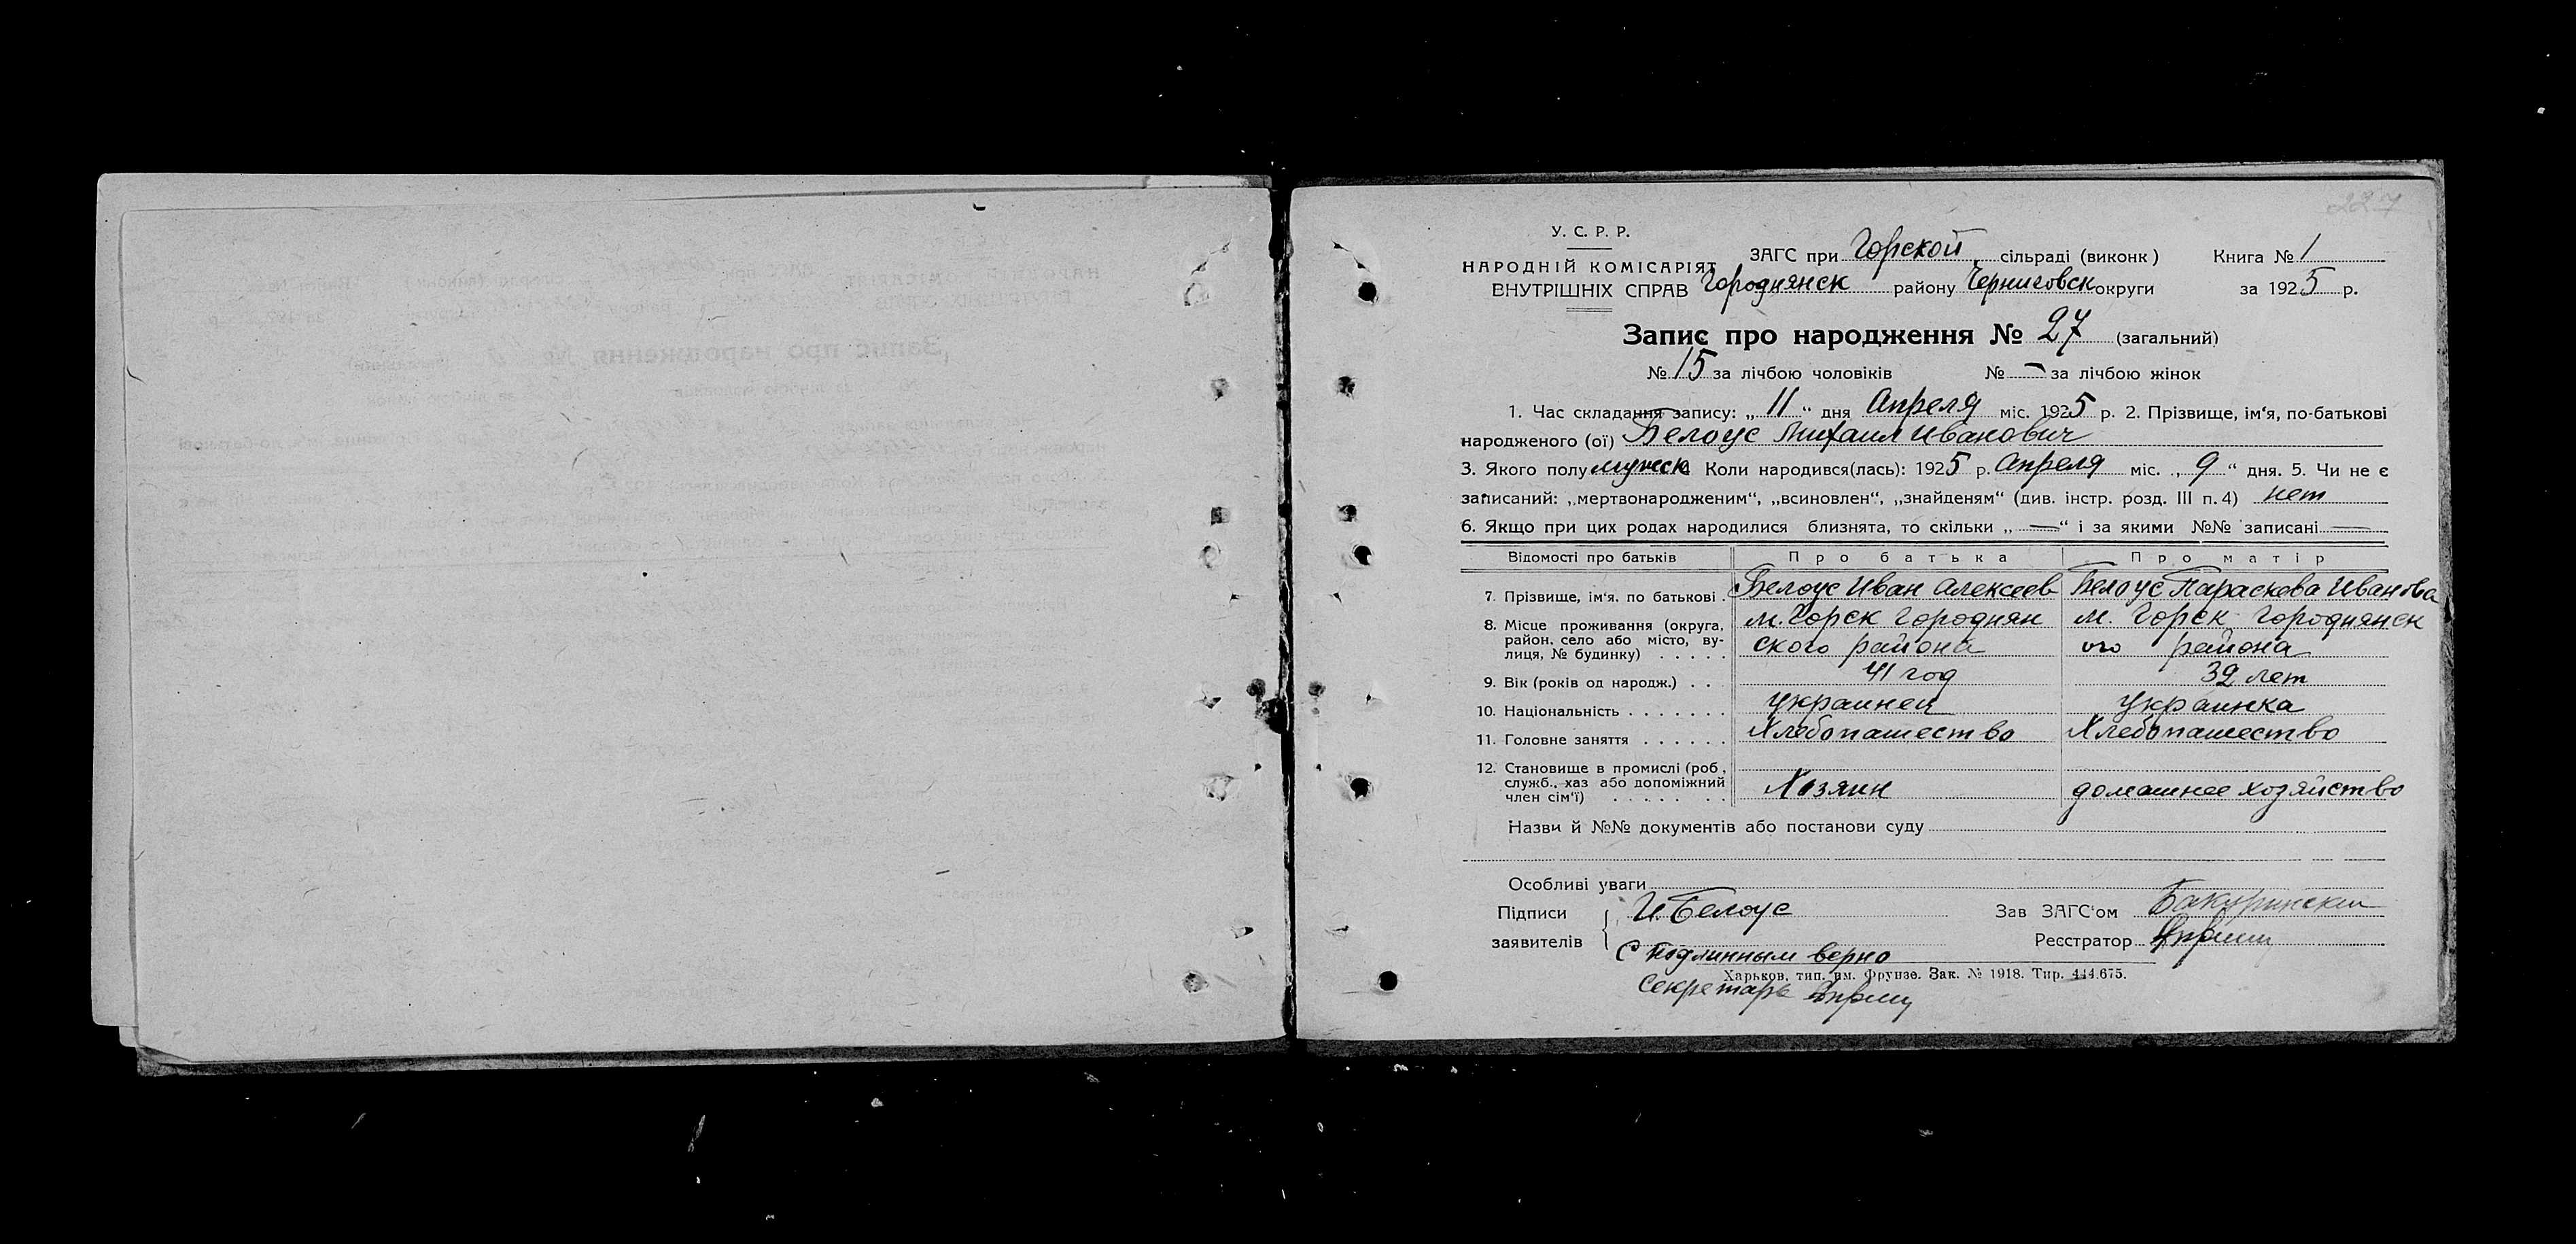 227
У. С. Р. Р.
НАРОДНІЙ КОМІСАРІЯТ
ВНУТРІШНІХ СПРАВ
ЗАГС при Горской сільраді (виконк) Книга № 1
Городнянск району Черниговск округи за 1925 р.
Запис про народження № 27 (загальний)
№ 15 за лічбою чоловіків № — за лічбою жінок
1. Час складання запису: „ 11 “ дня Апреля міс. 1925 р. 2. Прізвище, ім‘я, по-батькові
народженого (ої) Белоус Михаил Иванович
3. Якого полу мужск Коли народився(лась): 1925 р. Апреля міс. „ 9 “ дня. 5. Чи не є
записаний: „мертвонародженим“, „всиновлен“, „знайденям“ (див. інстр. розд. III п. 4) нет
6. Якщо при цих родах народилися близнята, то скільки „ — “ і за якими №№ записані —
Відомості про батьків Про батька Про матір
7. Прізвище, ім‘я. по батькові Белоус Иван Алексеев Белоус Параскева Иванова
8. Місце проживання (округа, район, село або місто, вулиця, № будинку) . . . . . м. Горск Городнян м. Горск Городнянск
ского района ого района
9. Вік (років од народж.) . . 41 год 39 лет
10. Національність . . . . . . . украинец украинка
11. Головне заняття . . . . . . Хлебопашество Хлебопашество
12. Становище в промислі (роб, служб., хаз або допоміжний член сім‘ї) . . . . . . . Хозяин домашнее хозяйство
Назви й №№ документів або постанови суду
Особливі уваги
Підписи заявителів И. Белоус
Зав ЗАГС‘ом
Реєстратор
С подлинным верно
Харьков, тип. им. Фрунзе. Зак. № 1918. Тир. 444.675.
Секретарь